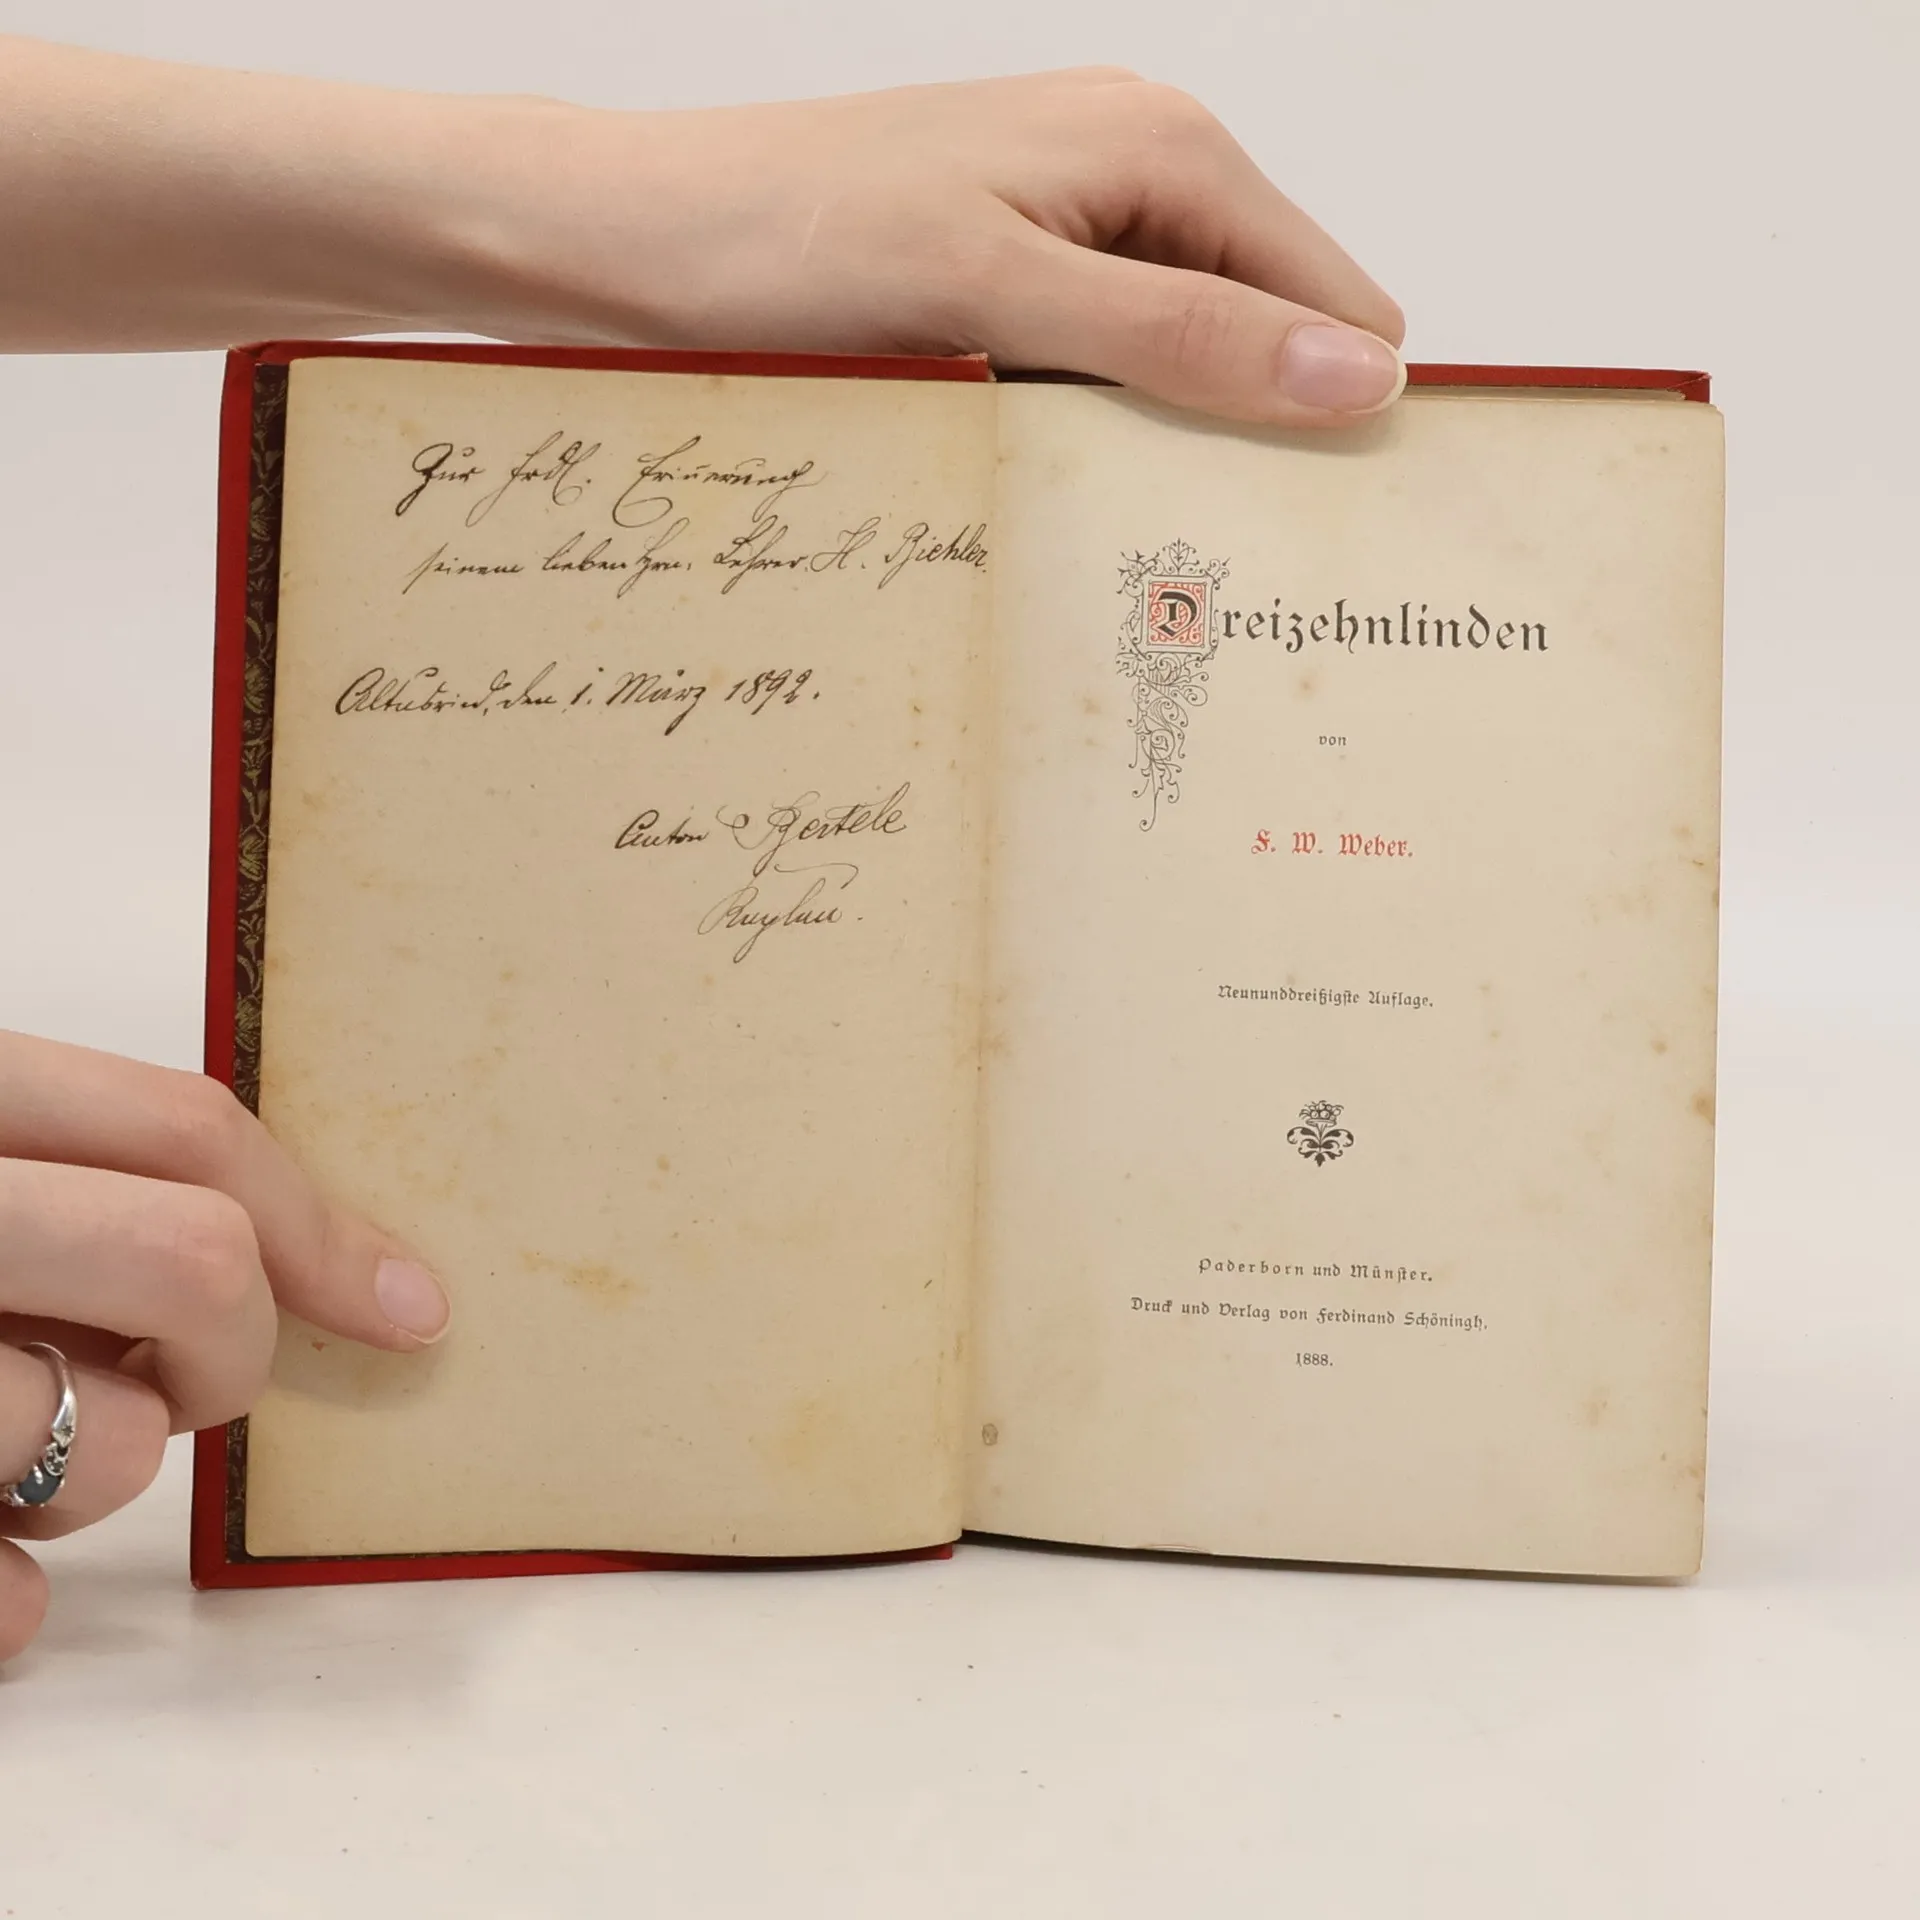 Zur frdl. Erinerung
seinem lieben Hrn. Lehrer H. Biehler.
Altusried, den 1. März 1892.
Anton Bertele
Dreizehnlinden
von
F. W. Weber.
Neununddreißigste Auflage.
Paderborn und Münster.
Druck und Verlag von Ferdinand Schöningh.
1888.